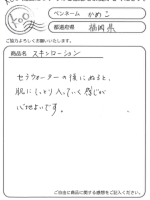 ペンネーム かめこ
都道府県 福岡県
ご協力よろしくお願いいたします。
商品名 スキンローション
セラウォーターの後にぬると、
肌にしっとり入っていく感じが
心地よいです。
ご自由に商品に関する感想をご記入ください。